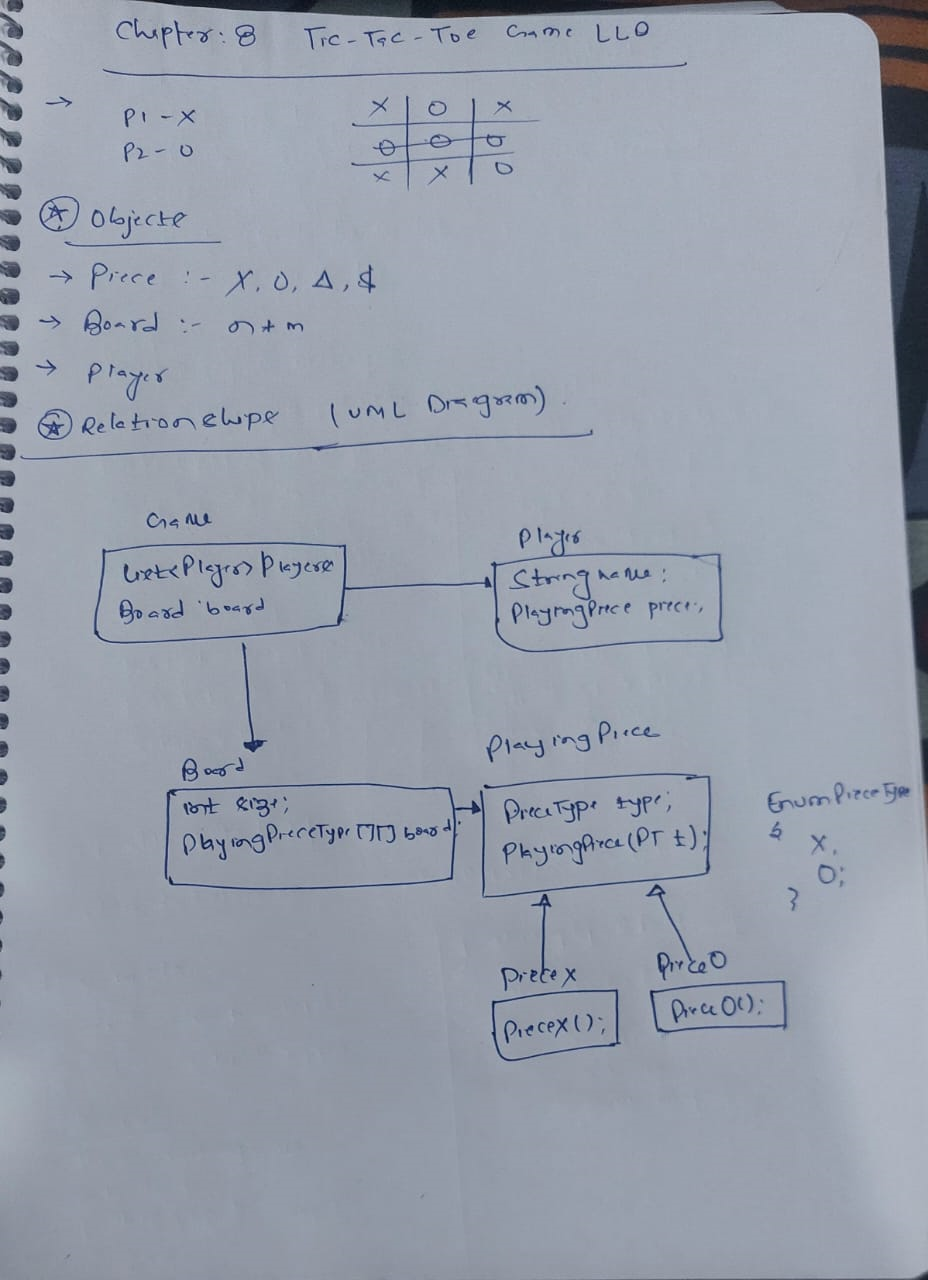 Chapter: 8 Tic-Tac-Toe Game LLD
→ P1 - X
P2 - O
X | O | X
O | O | O
X | X | O
Objects
→ Piece :- X, O, Δ, $
→ Board :- n * m
→ Player
Relationships (UML Diagram).
Game
List<Player> Players
Board board
Player
String name;
PlayingPiece piece;
Board
int size;
PlayingPieceType[][] board;
PlayingPiece
PieceType type;
PlayingPiece(PT t);
Enum PieceType
{
X,
O;
}
PieceX
PieceX();
PieceO
PieceO();